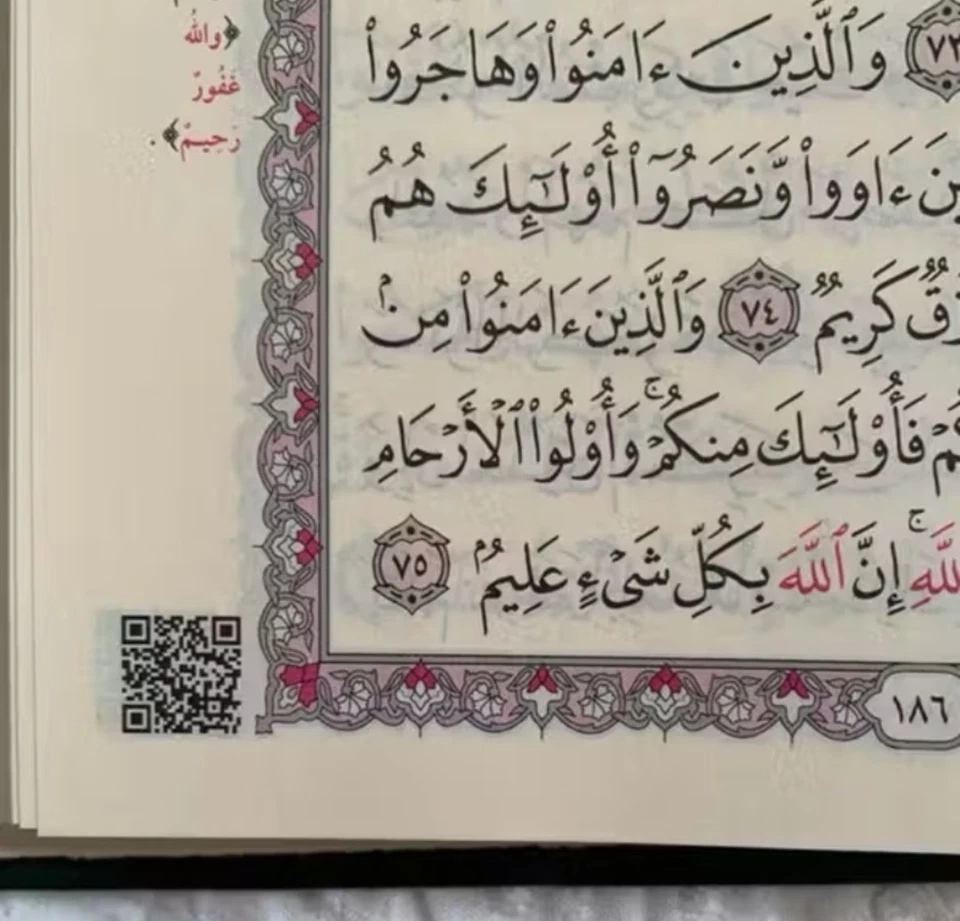 ﴿والله
غَفُورٌ
رَحِيمٌ﴾.
٧٣ وَٱلَّذِينَ ءَامَنُوا۟ وَهَاجَرُوا۟
ءَاوَوا۟ وَّنَصَرُوٓا۟ أُو۟لَـٰٓئِكَ هُمُ
كَرِيمٌ ٧٤ وَٱلَّذِينَ ءَامَنُوا۟ مِنۢ
فَأُو۟لَـٰٓئِكَ مِنكُمْ ۚ وَأُو۟لُوا۟ ٱلْأَرْحَامِ
ۚ إِنَّ ٱللَّهَ بِكُلِّ شَىْءٍ عَلِيمٌۢ ٧٥
١٨٦